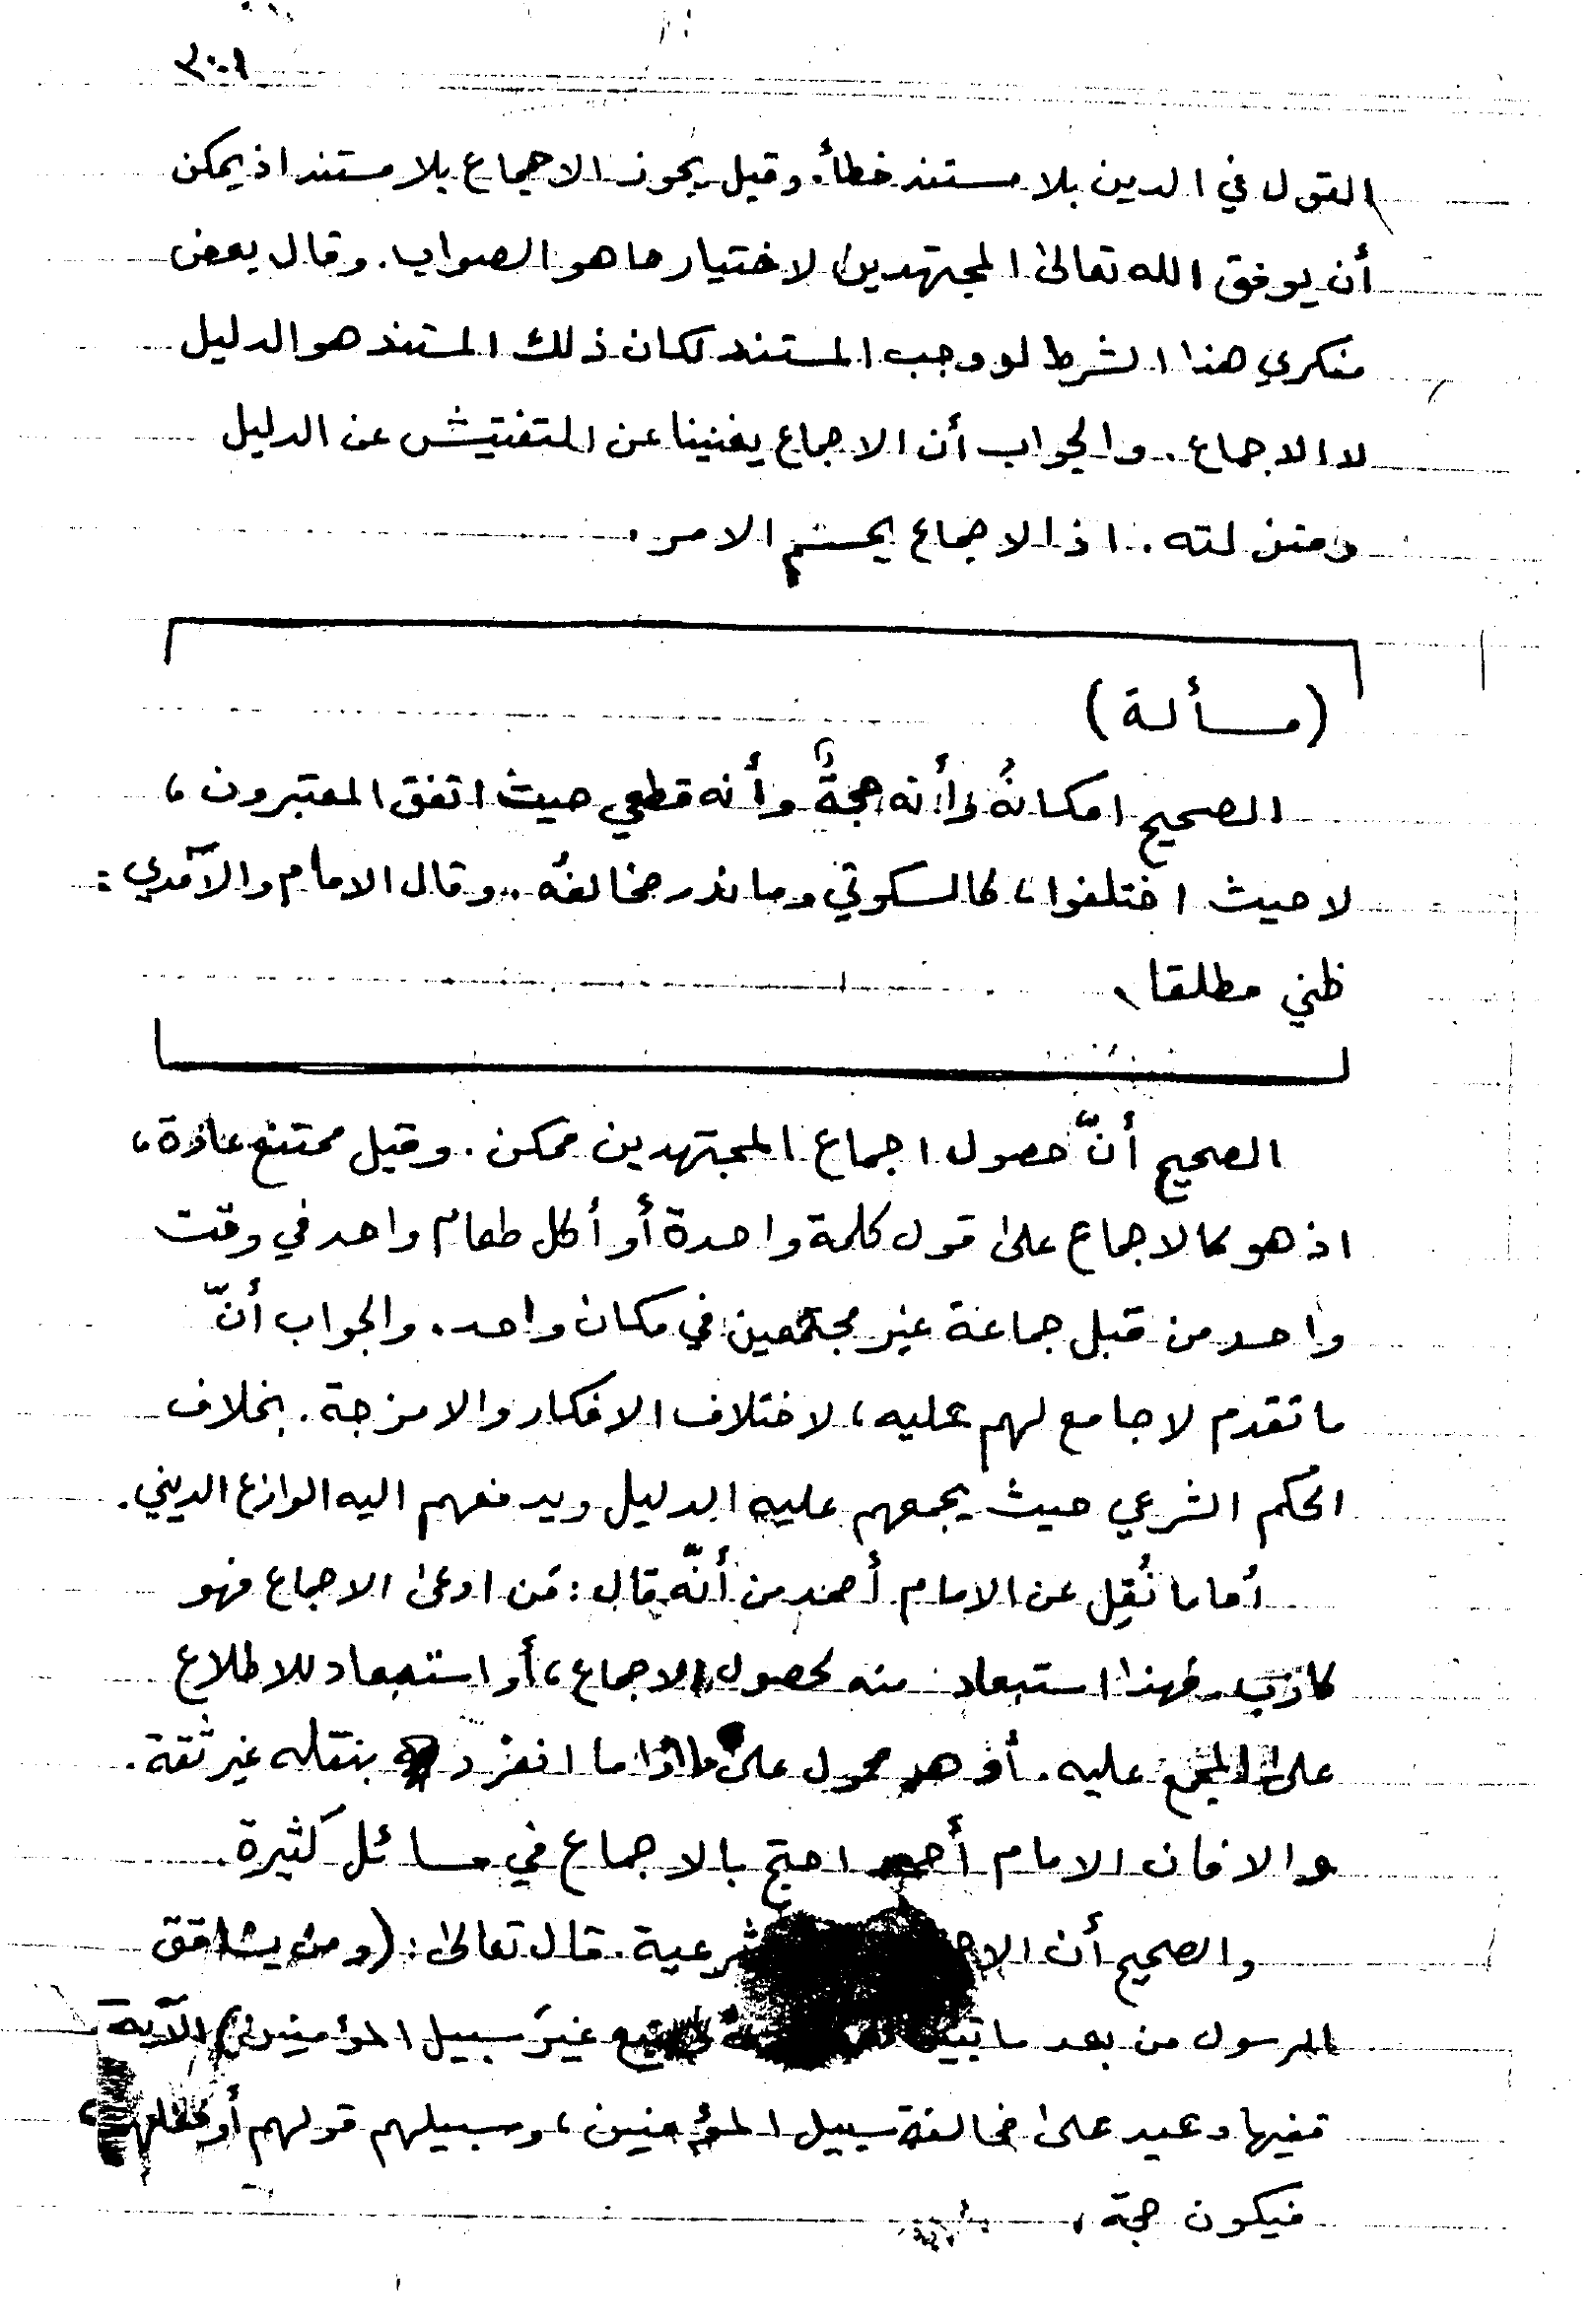 ٢٠١
القول في الدين بلا مستند خطأ. وقيل يجوز الاجماع بلا مستند اذ يمكن
أن يوفق الله تعالى المجتهدين لاختيار ما هو الصواب. وقال بعض
منكري هذا الشرط لو وجب المستند لكان ذلك المستند هو الدليل
لا الاجماع. والجواب أن الاجماع يغنينا عن التفتيش عن الدليل
ومنزلته. اذ الاجماع يحسم الامر.
(مسألة)
الصحيح امكانهُ وأنه حجةٌ وأنه قطعي حيث اتفق المعتبرون،
لا حيث اختلفوا، كالسكوتي وما ندر مخالفه.. وقال الامام والآمدي:
ظني مطلقا
الصحيح أنّ حصول اجماع المجتهدين ممكن. وقيل ممتنع عادة،
اذ هو كالاجماع على قول كلمة واحدة أو أكل طعام واحد في وقت
واحد من قبل جماعة غير مجتمعين في مكان واحد. والجواب أنّ
ما تقدم لا جامع لهم عليه، لاختلاف الافكار والامزجة. بخلاف
الحكم الشرعي حيث يجمعهم عليه الدليل ويدفعهم اليه الوازع الديني.
أما ما نُقِل عن الامام أحمد من أنّه قال: مَن ادعى الاجماع فهو
كاذب. فهذا استبعاد منه لحصول الاجماع، أو استبعاد للاطلاع
على المجمع عليه. أو هو محمول على ما اذا ما انفرد بنقله غير ثقة.
والا فان الامام أحمد احتج بالاجماع في مسائل كثيرة.
والصحيح أن شرعية. قال تعالى: (ومن يشاقق
الرسول من بعد ما تبين غيرَ سبيل المؤمنين) الآية
ففيها وعيد على مخالفة سبيل المؤمنين، وسبيلهم قولهم أو فعلهم،
فيكون حجة.